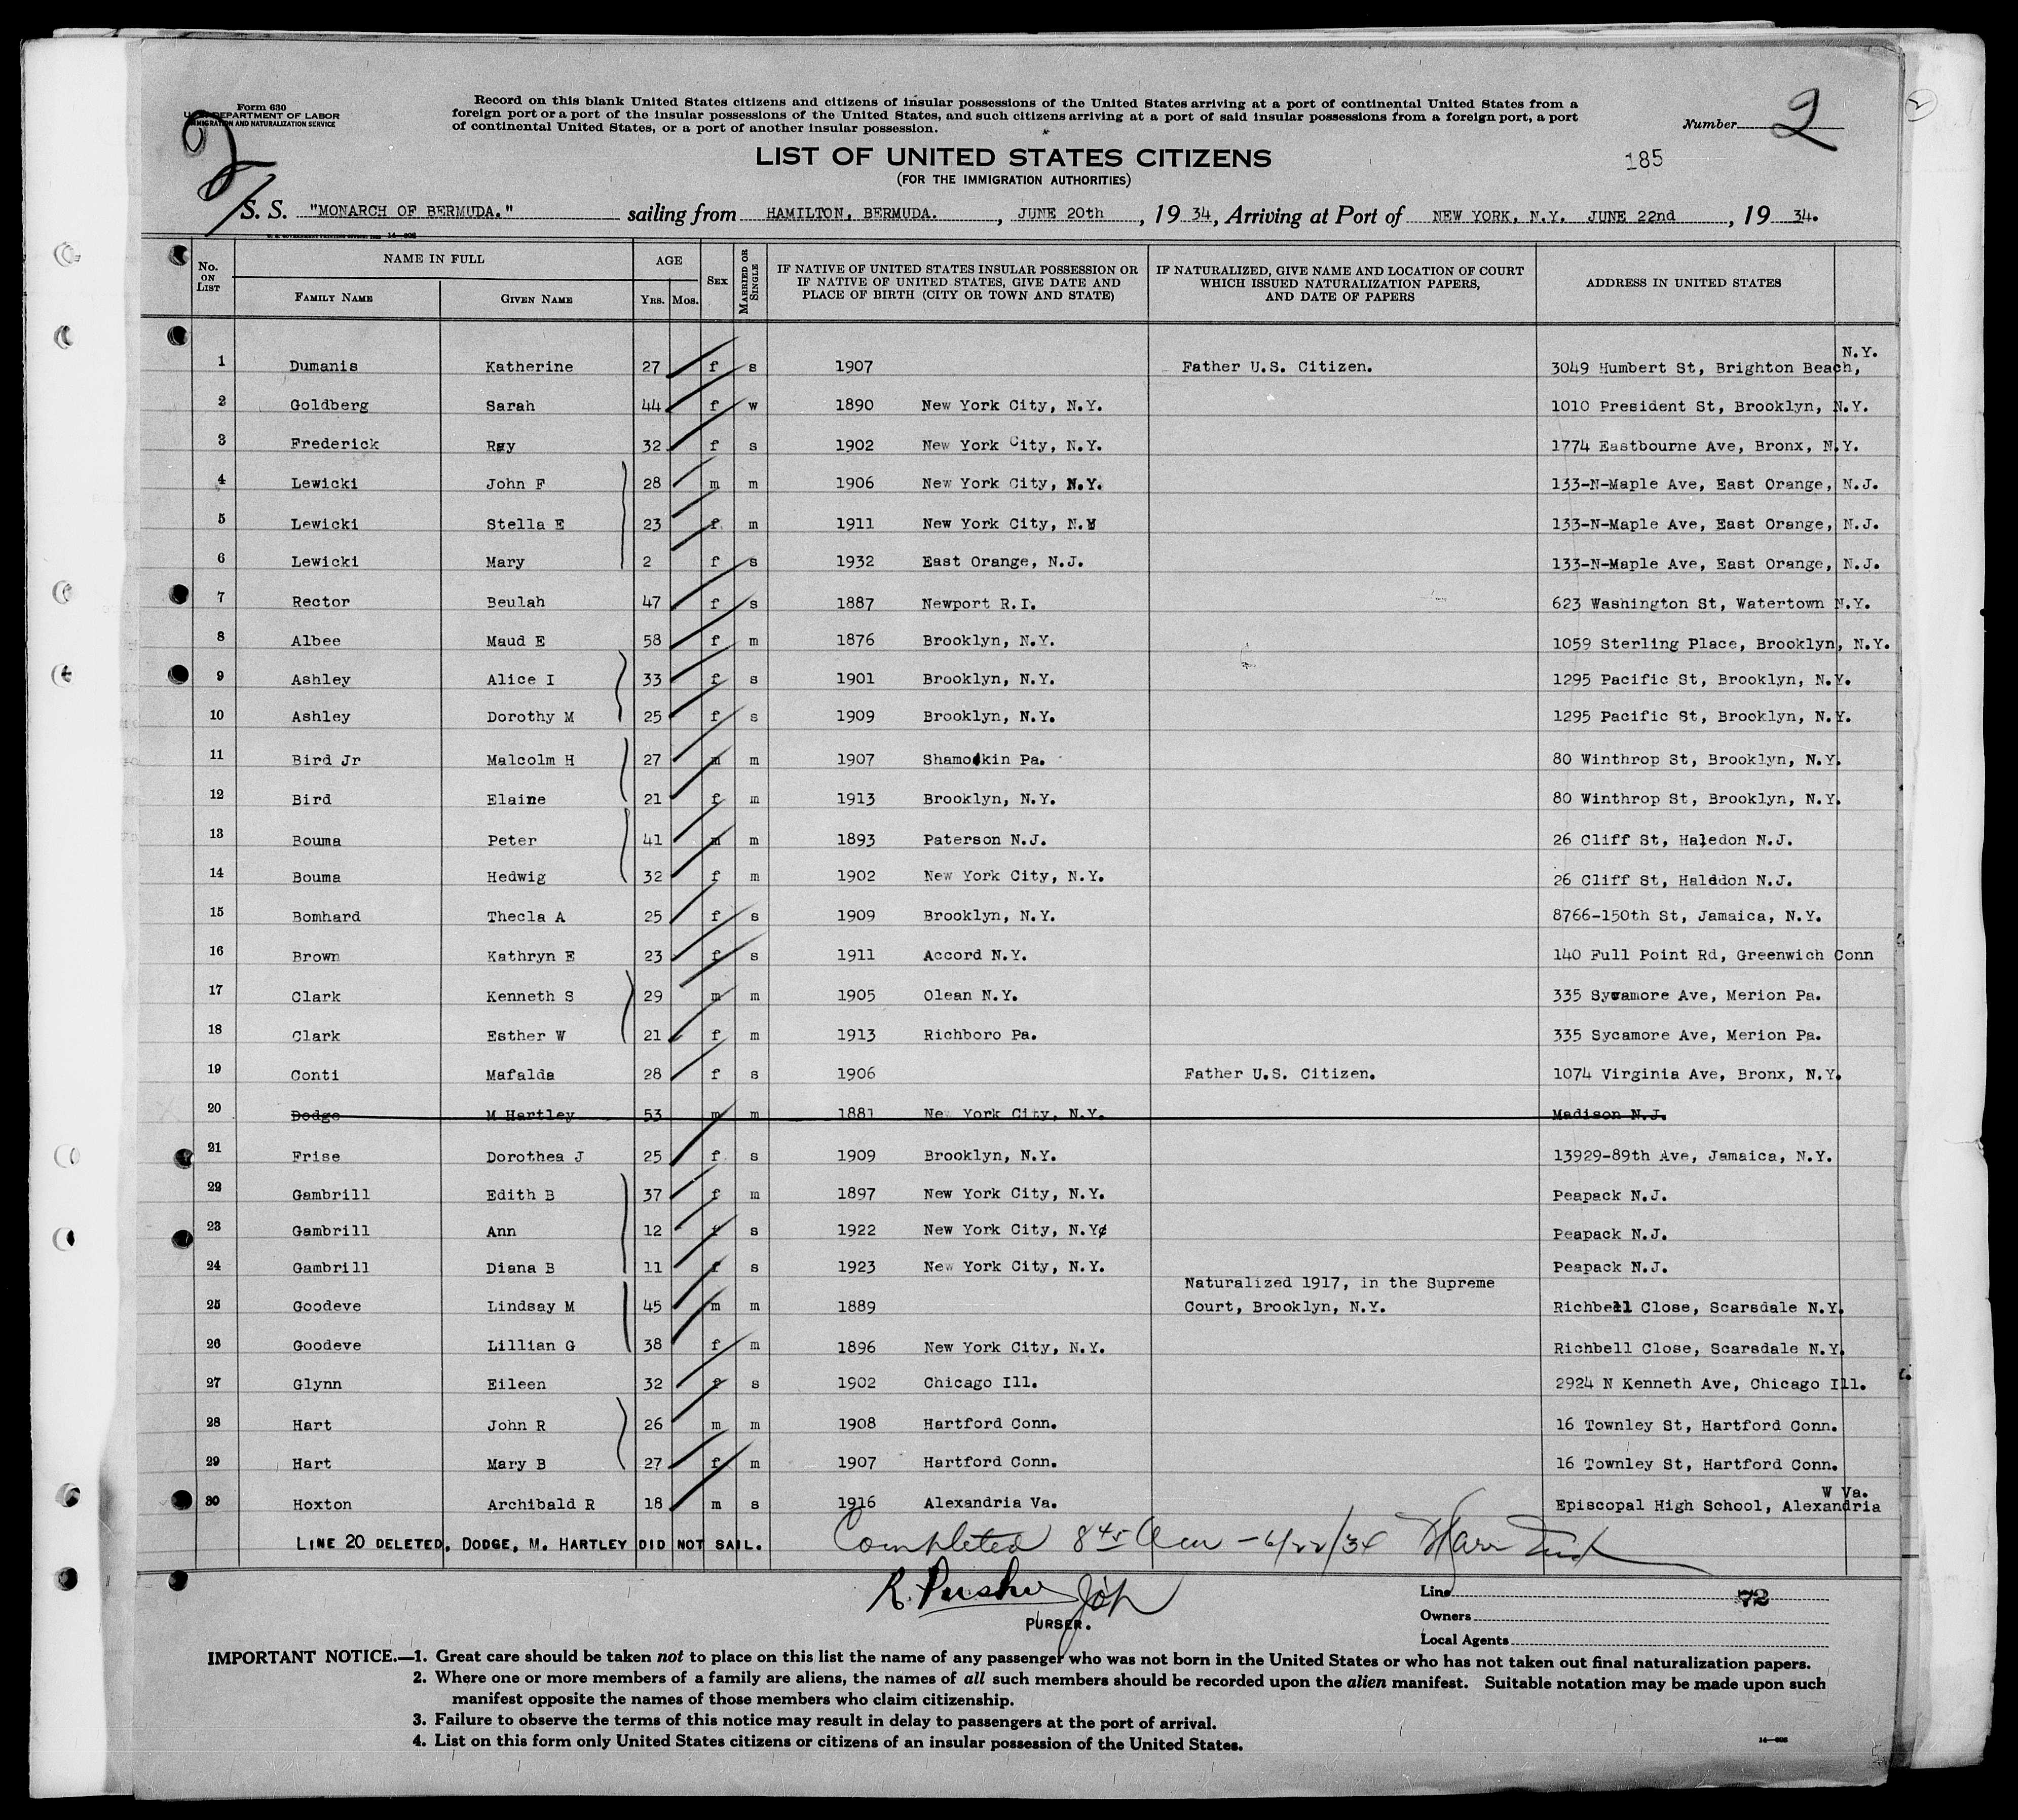 Form 630
U.S. DEPARTMENT OF LABOR
IMMIGRATION AND NATURALIZATION SERVICE
Record on this blank United States citizens and citizens of insular possessions of the United States arriving at a port of continental United States from a
foreign port or a port of the insular possessions of the United States, and such citizens arriving at a port of said insular possessions from a foreign port, a port
of continental United States, or a port of another insular possession.
Number 2
2
LIST OF UNITED STATES CITIZENS
185
(FOR THE IMMIGRATION AUTHORITIES)
S. S. "MONARCH OF BERMUDA." sailing from HAMILTON, BERMUDA. , JUNE 20th , 19 34, Arriving at Port of NEW YORK, N.Y. JUNE 22nd , 19 34.
No. ON LIST NAME IN FULL AGE SEX MARRIED OR SINGLE IF NATIVE OF UNITED STATES INSULAR POSSESSION OR IF NATIVE OF UNITED STATES, GIVE DATE AND PLACE OF BIRTH (CITY OR TOWN AND STATE) IF NATURALIZED, GIVE NAME AND LOCATION OF COURT WHICH ISSUED NATURALIZATION PAPERS, AND DATE OF PAPERS ADDRESS IN UNITED STATES
FAMILY NAME GIVEN NAME YRS. MOS.
1 Dumanis Katherine 27 f s 1907 Father U.S. Citizen. 3049 Humbert St, Brighton Beach, N.Y.
2 Goldberg Sarah 44 f w 1890 New York City, N.Y. 1010 President St, Brooklyn, N.Y.
3 Frederick Ray 32 f s 1902 New York City, N.Y. 1774 Eastbourne Ave, Bronx, N.Y.
4 Lewicki John F 28 m m 1906 New York City, N.Y. 133-N-Maple Ave, East Orange, N.J.
5 Lewicki Stella E 23 f m 1911 New York City, N.Y 133-N-Maple Ave, East Orange, N.J.
6 Lewicki Mary 2 f s 1932 East Orange, N.J. 133-N-Maple Ave, East Orange, N.J.
7 Rector Beulah 47 f s 1887 Newport R.I. 623 Washington St, Watertown N.Y.
8 Albee Maud E 58 f m 1876 Brooklyn, N.Y. 1059 Sterling Place, Brooklyn, N.Y.
9 Ashley Alice I 33 f s 1901 Brooklyn, N.Y. 1295 Pacific St, Brooklyn, N.Y.
10 Ashley Dorothy M 25 f s 1909 Brooklyn, N.Y. 1295 Pacific St, Brooklyn, N.Y.
11 Bird Jr Malcolm H 27 m m 1907 Shamokin Pa. 80 Winthrop St, Brooklyn, N.Y.
12 Bird Elaine 21 f m 1913 Brooklyn, N.Y. 80 Winthrop St, Brooklyn, N.Y.
13 Bouma Peter 41 m m 1893 Paterson N.J. 26 Cliff St, Haledon N.J.
14 Bouma Hedwig 32 f m 1902 New York City, N.Y. 26 Cliff St, Haleddon N.J.
15 Bomhard Thecla A 25 f s 1909 Brooklyn, N.Y. 8766-150th St, Jamaica, N.Y.
16 Brown Kathryn E 23 f s 1911 Accord N.Y. 140 Full Point Rd, Greenwich Conn
17 Clark Kenneth S 29 m m 1905 Olean N.Y. 335 Sycamore Ave, Merion Pa.
18 Clark Esther W 21 f m 1913 Richboro Pa. 335 Sycamore Ave, Merion Pa.
19 Conti Mafalda 28 f s 1906 Father U.S. Citizen. 1074 Virginia Ave, Bronx, N.Y.
20 Dodge M Hartley 53 m m 1881 New York City, N.Y. Madison N.J.
21 Frise Dorothea J 25 f s 1909 Brooklyn, N.Y. 13929-89th Ave, Jamaica, N.Y.
22 Gambrill Edith B 37 f m 1897 New York City, N.Y. Peapack N.J.
23 Gambrill Ann 12 f s 1922 New York City, N.Y. Peapack N.J.
24 Gambrill Diana B 11 f s 1923 New York City, N.Y. Peapack N.J.
25 Goodeve Lindsay M 45 m m 1889 Naturalized 1917, in the Supreme Court, Brooklyn, N.Y. Richbell Close, Scarsdale N.Y.
26 Goodeve Lillian G 38 f m 1896 New York City, N.Y. Richbell Close, Scarsdale N.Y.
27 Glynn Eileen 32 f s 1902 Chicago Ill. 2924 N Kenneth Ave, Chicago Ill.
28 Hart John R 26 m m 1908 Hartford Conn. 16 Townley St, Hartford Conn.
29 Hart Mary B 27 f m 1907 Hartford Conn. 16 Townley St, Hartford Conn.
30 Hoxton Archibald R 18 m s 1916 Alexandria Va. Episcopal High School, Alexandria W Va.
LINE 20 DELETED, DODGE, M. HARTLEY DID NOT SAIL.
Completed 8 45 am - 6/22/34
PURSER.
Line 72
Owners
Local Agents
IMPORTANT NOTICE.—1. Great care should be taken not to place on this list the name of any passenger who was not born in the United States or who has not taken out final naturalization papers.
2. Where one or more members of a family are aliens, the names of all such members should be recorded upon the alien manifest. Suitable notation may be made upon such
manifest opposite the names of those members who claim citizenship.
3. Failure to observe the terms of this notice may result in delay to passengers at the port of arrival.
4. List on this form only United States citizens or citizens of an insular possession of the United States.